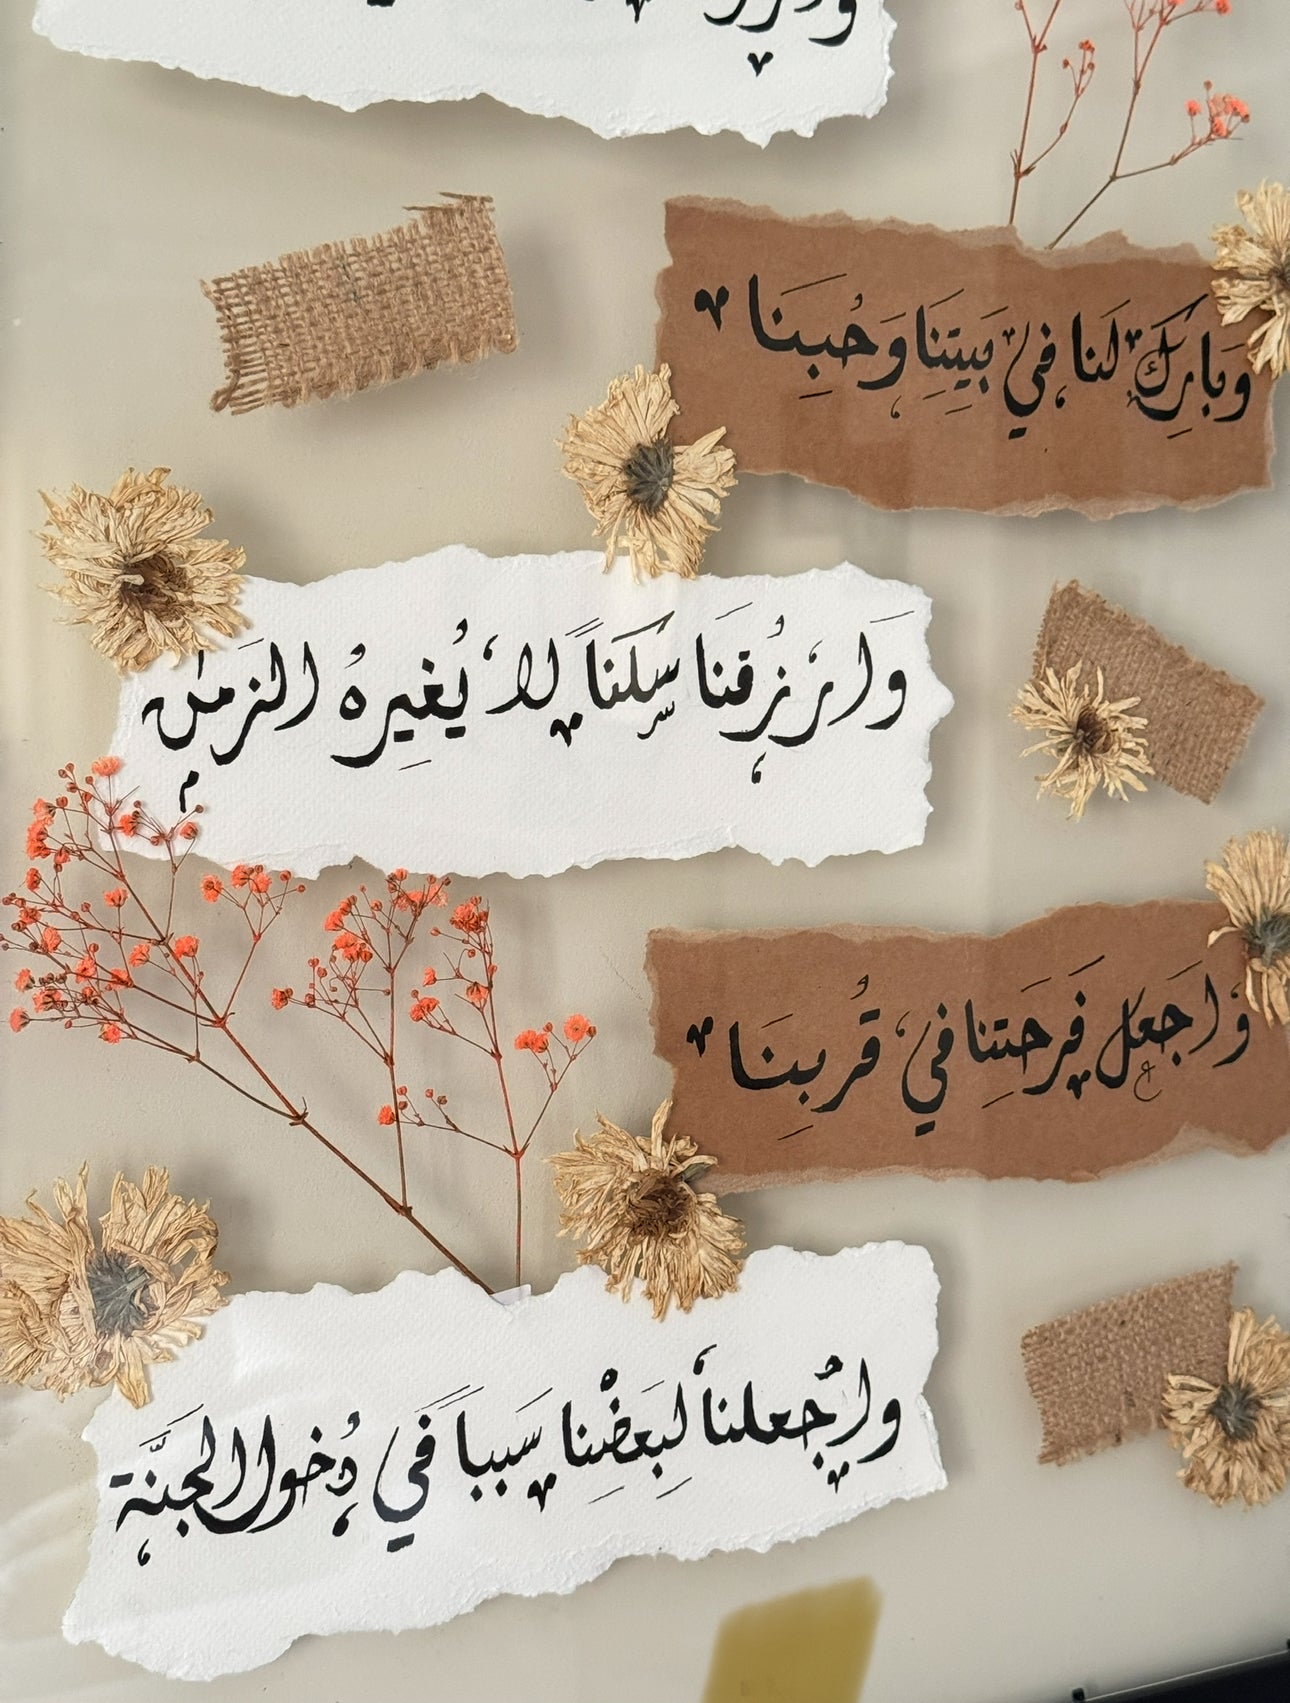 وَبَارِك لَنا في بَيتِنَا وَحُبِبنَا
وَارزُقنَا سَكَناً لا يُغيِرهُ الزمن
وَاجَعل فَرحَتِنا في قُربِنَا
واجعلنا لِبَعضِنا سَبباً في دُخول الجَنَّة